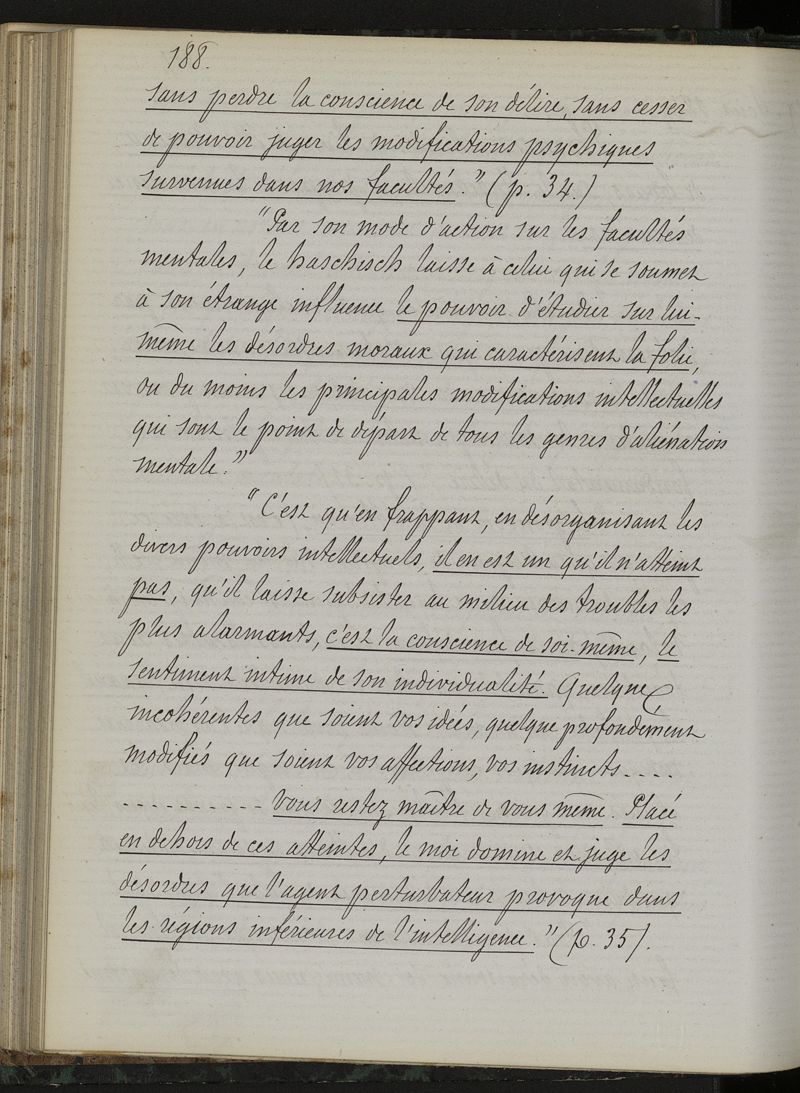 188.
sans perdre la conscience de son délire, sans cesser
de pouvoir juger les modifications psychiques
survenues dans nos facultés." (p. 34.)
"Par son mode d'action sur les facultés
mentales, le haschisch laisse à celui qui se soumet
à son étrange influence le pouvoir d'étudier sur lui-
même les désordres moraux qui caractérisent la folie,
ou du moins les principales modifications intellectuelles
qui sont le point de départ de tous les genres d'aliénation
mentale."
"C'est qu'en frappant, en désorganisant les
divers pouvoirs intellectuels, il en est un qu'il n'atteint
pas, qu'il laisse subsister au milieu des troubles les
plus alarmants, c'est la conscience de soi-même, le
sentiment intime de son individualité. Quelque
incohérentes que soient vos idées, quelque profondément
modifiés que soient vos affections, vos instincts ....
.......... vous restez maître de vous même. Placé
en dehors de ces atteintes, le moi domine et juge les
désordres que l'agent perturbateur provoque dans
les régions inférieures de l'intelligence." (p. 35).